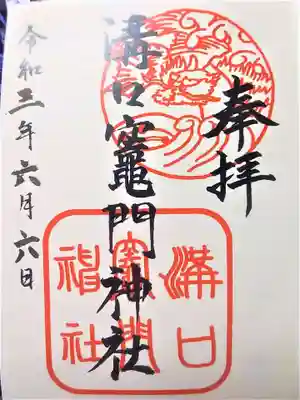 奉拝
溝口竈門神社
令和三年六月六日
溝口
竈門
神社